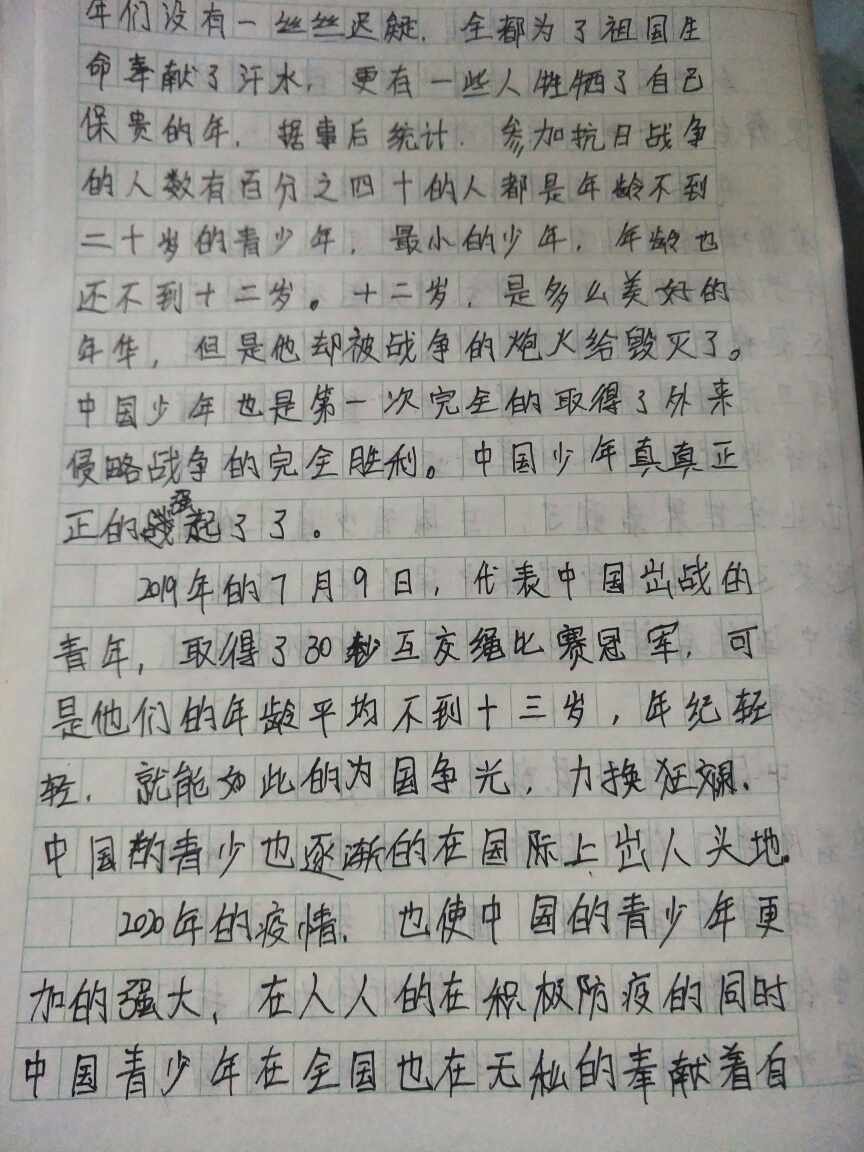 年们没有一丝丝迟疑.全都为了祖国生
命奉献了汗水,更有一些人牲牺了自己
保贵的年.据事后统计.参加抗日战争
的人数有百分之四十的人都是年龄不到
二十岁的青少年,最小的少年,年龄也
还不到十二岁。十二岁,是多么美好的
年华,但是他却被战争的炮火给毁灭了。
中国少年也是第一次完全的取得了外来
侵略战争的完全胜利。中国少年真真正
正的强起了了。
2019年的7月9日,代表中国出战的
青年,取得了30秒互交绳比赛冠军,可
是他们的年龄平均不到十三岁,年纪轻
轻.就能如此的为国争光,力换狂澜.
中国的青少也逐渐的在国际上出人头地.
2020年的疫情.也使中国的青少年更
加的强大,在人人的在积极防疫的同时
中国青少年在全国也在无私的奉献着自